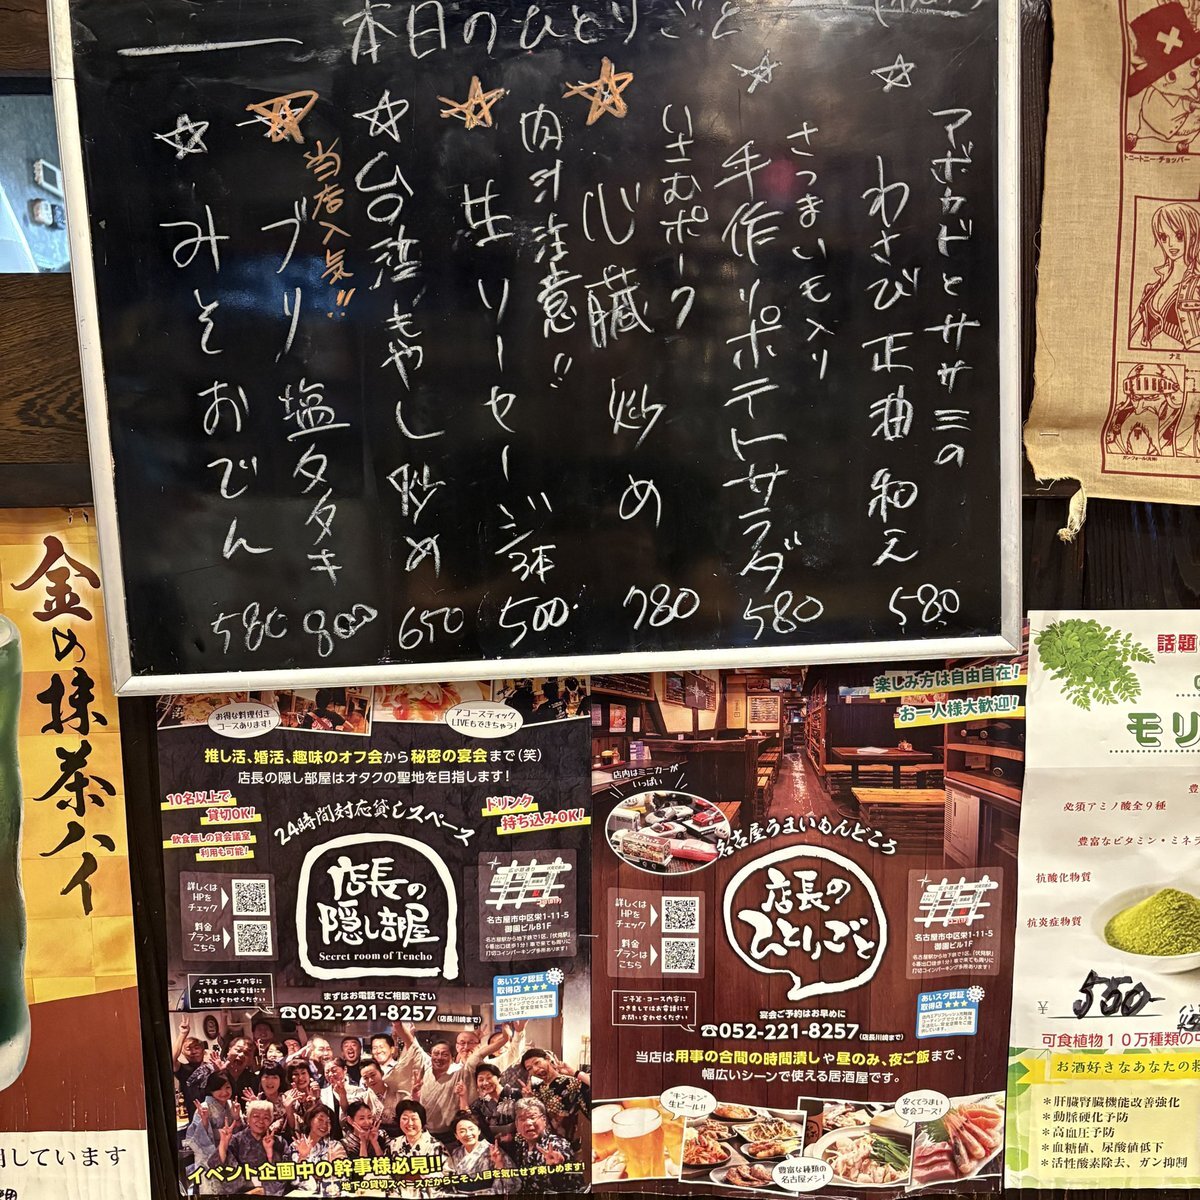 本日のひとりごと
アボカドとササミの
わさび正油和え
580
さつまいも入り
手作りポテトサラダ
580
いさむポーク
心臓炒め
780
肉汁注意!!
生ソーセージ
3本
500
台湾もやし炒め
650
当店人気!!
ブリ塩タタキ
800
みそおでん
580
トニートニー・チョッパー
ナミ
金の抹茶ハイ
しています
お得な料理付き
コースあります!
アコースティック
LIVEもできちゃう!
推し活、婚活、趣味のオフ会から秘密の宴会まで(笑)
店長の隠し部屋はオタクの聖地を目指します!
10名以上で
貸切OK!
飲食無しの貸会議室
利用も可能!
ドリンク
持ち込みOK!
24時間対応貸しスペース
店長の
隠し部屋
Secret room of Tencho
詳しくは
HPを
チェック
料金
プランは
こちら
名古屋市中区栄1-11-5
御園ビルB1F
ご予算・コース内容に
つきましてはお電話にて
お問い合わせください
あいスタ認証
取得店★★★
まずはお電話でご相談下さい
☎052-221-8257(店長川崎まで)
イベント企画中の幹事様必見!!
地下の貸切スペースだからこそ、人目を気にせず楽しめます!
楽しみ方は自由自在!
お一人様大歓迎!
店内はミニカーが
いっぱい
名古屋うまいもんどころ
店長の
ひとりごと
詳しくは
HPを
チェック
料金
プランは
こちら
名古屋市中区栄1-11-5
御園ビル1F
ご予算・コース内容に
つきましてはお電話にて
お問い合わせください
あいスタ認証
取得店★★★
宴会ご予約はお早めに
☎052-221-8257(店長川崎まで)
当店は用事の合間の時間潰しや昼のみ、夜ご飯まで、
幅広いシーンで使える居酒屋です。
"キンキン"
生ビール!!
豊富な種類の
名古屋メシ!
安くてうまい
宴会コース!
話題
モリ
必須アミノ酸全9種
豊富なビタミン・ミネラ
抗酸化物質
抗炎症物質
¥ 550
可食植物10万種類の中
お酒好きなあなたの
*肝臓腎臓機能改善強化
*動脈硬化予防
*高血圧予防
*血糖値、尿酸値低下
*活性酸素除去、ガン抑制